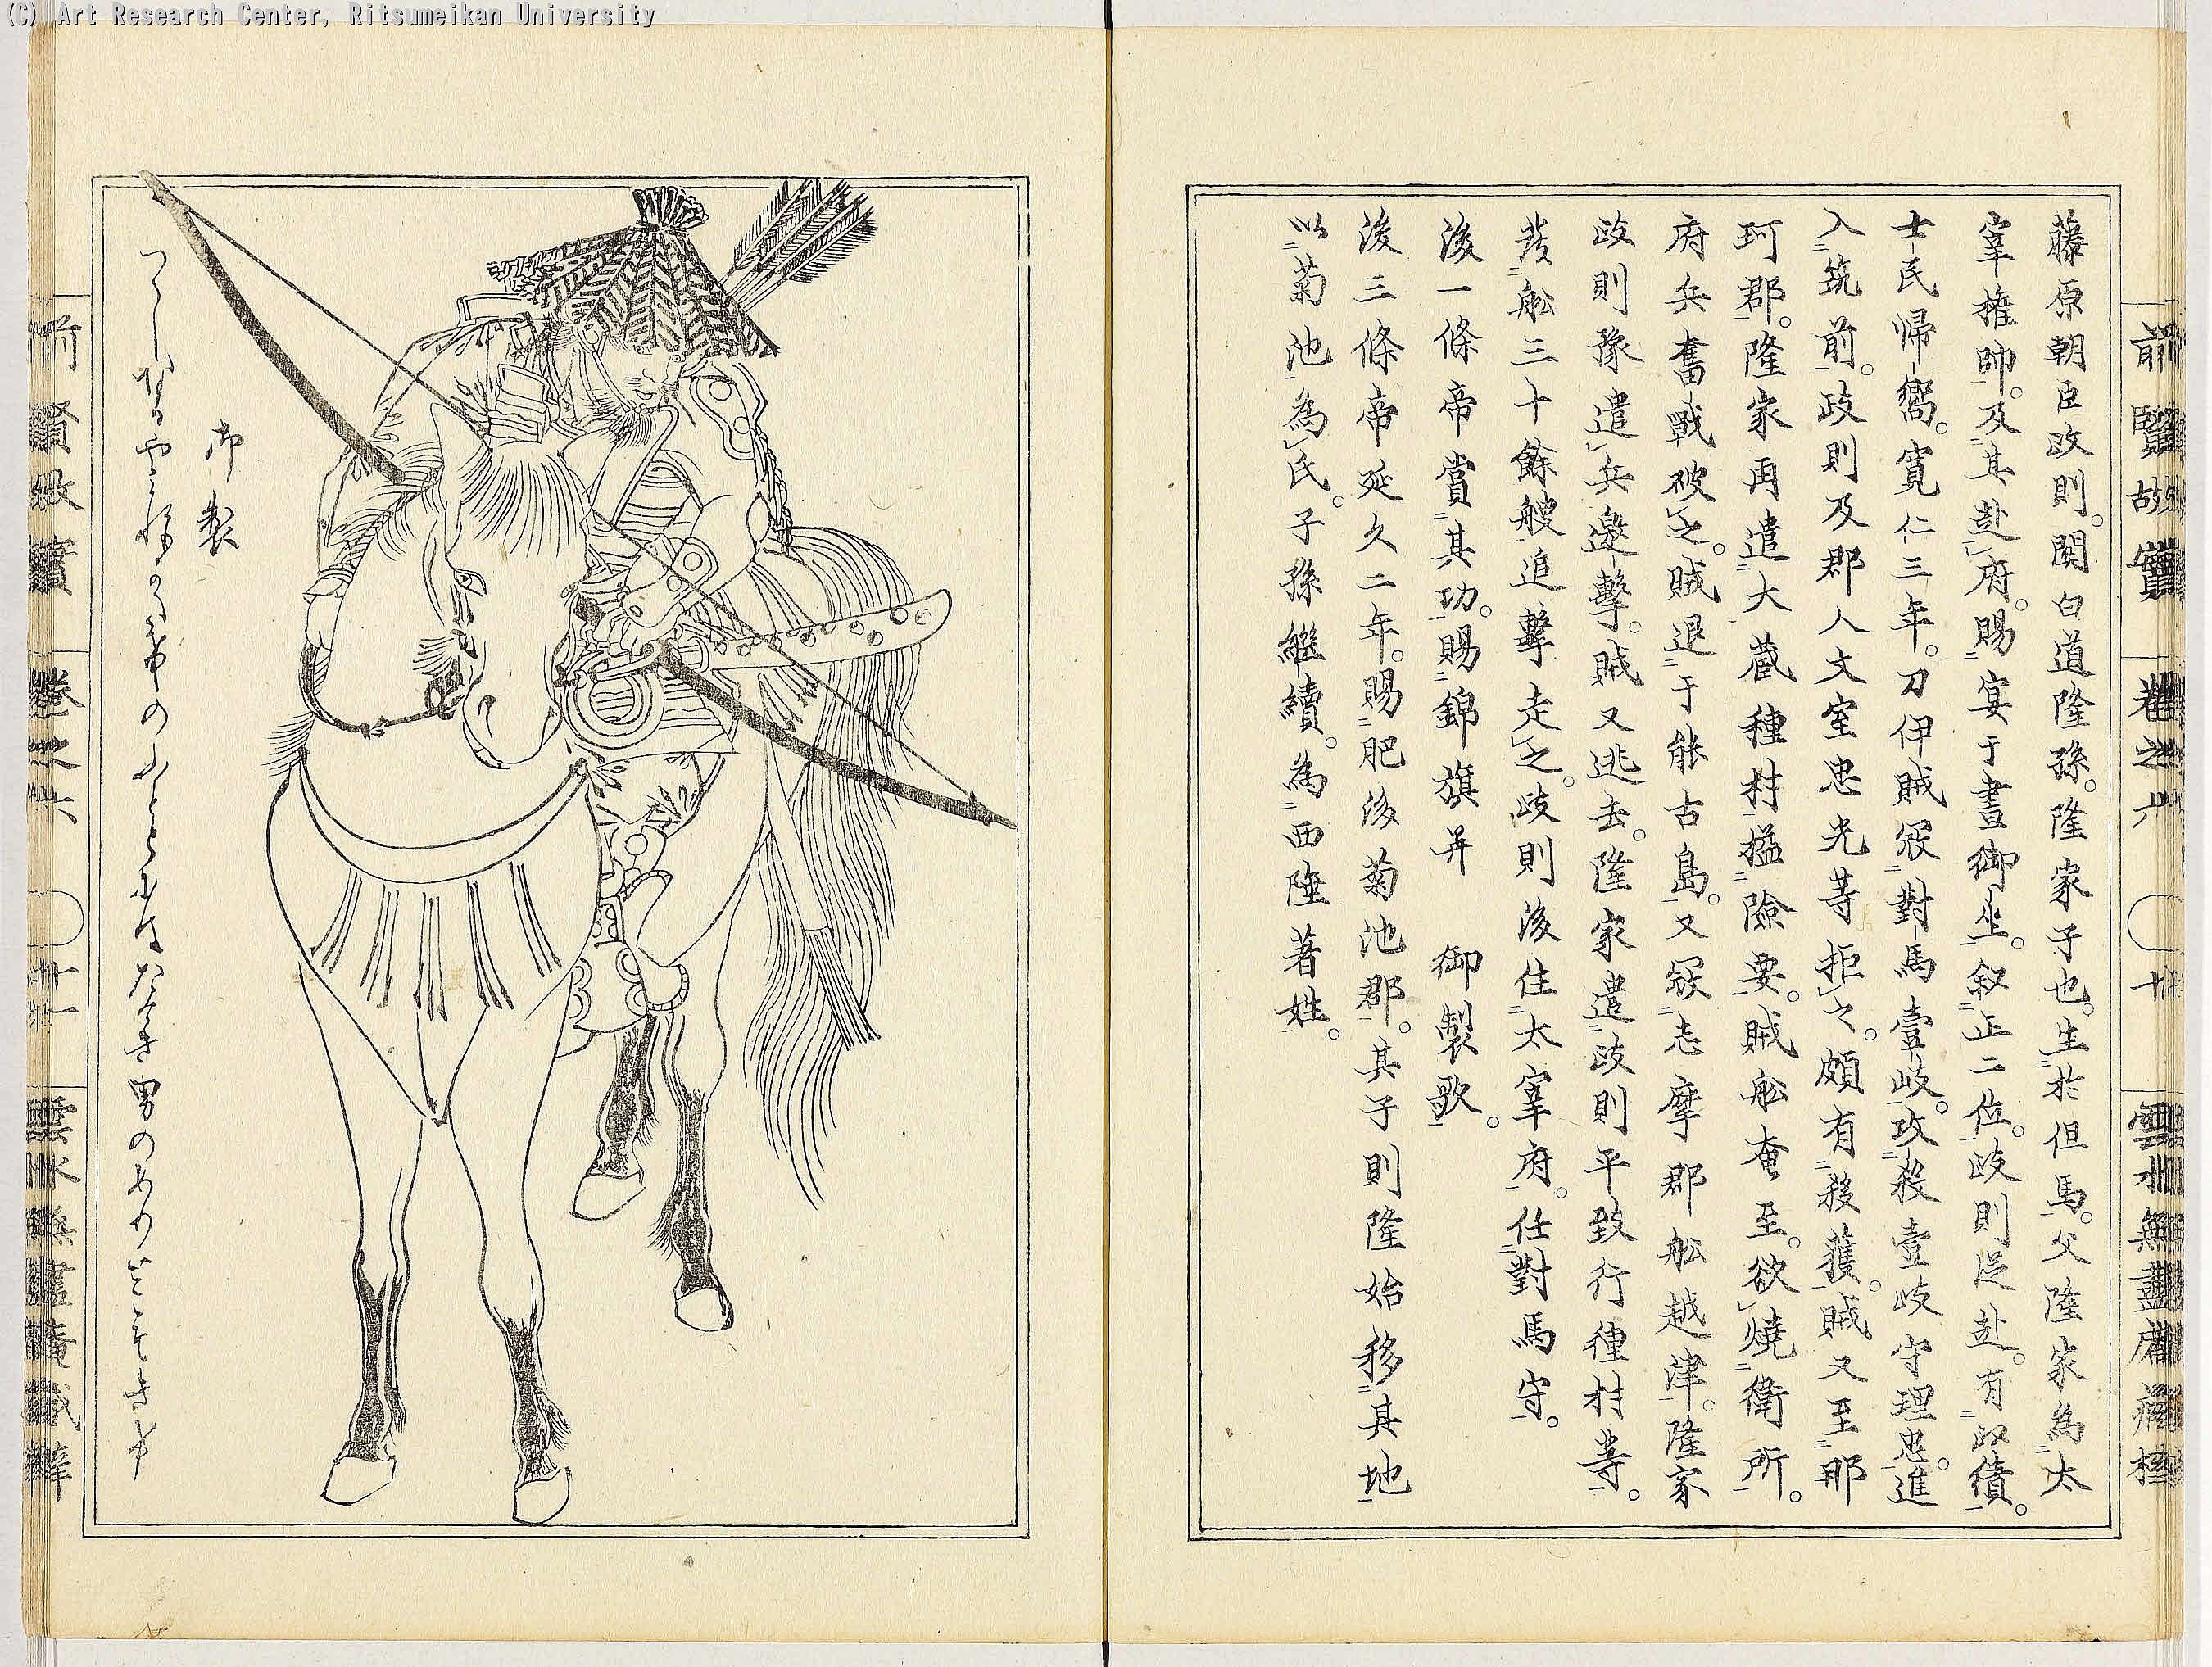 (C) Art Research Center, Ritsumeikan University
前賢故實 卷之六 ○十 雲水無盡庵藏梓
藤原朝臣政則。関白道隆孫。隆家子也。生於但馬。父隆家為太
宰権帥。及其赴府。賜宴于晝御坐。叙正二位。政則從赴。有政績。
士民帰嚮。寛仁三年。刀伊賊寇對馬壹岐。攻殺壹岐守理忠。進
入筑前。政則及郡人文室忠光等拒之。頗有殺獲。賊又至那
珂郡。隆家再遣大蔵種材搤險要。賊舩奄至。欲燒衛所。
府兵奮戰破之。賊退于能古島。又寇志摩郡舩越津。隆家
政則豫遣兵邀擊。賊又逃去。隆家遣政則平致行種材等。
發舩三十餘艘追擊走之。政則後住太宰府。任對馬守。
後一條帝賞其功。賜錦旗并 御製歌。
後三條帝延久二年。賜肥後菊池郡。其子則隆始移其地
以菊池為氏。子孫継續。為西陲著姓。
御製
男の
前賢故實 卷之六 ○十一 雲水無盡庵藏梓